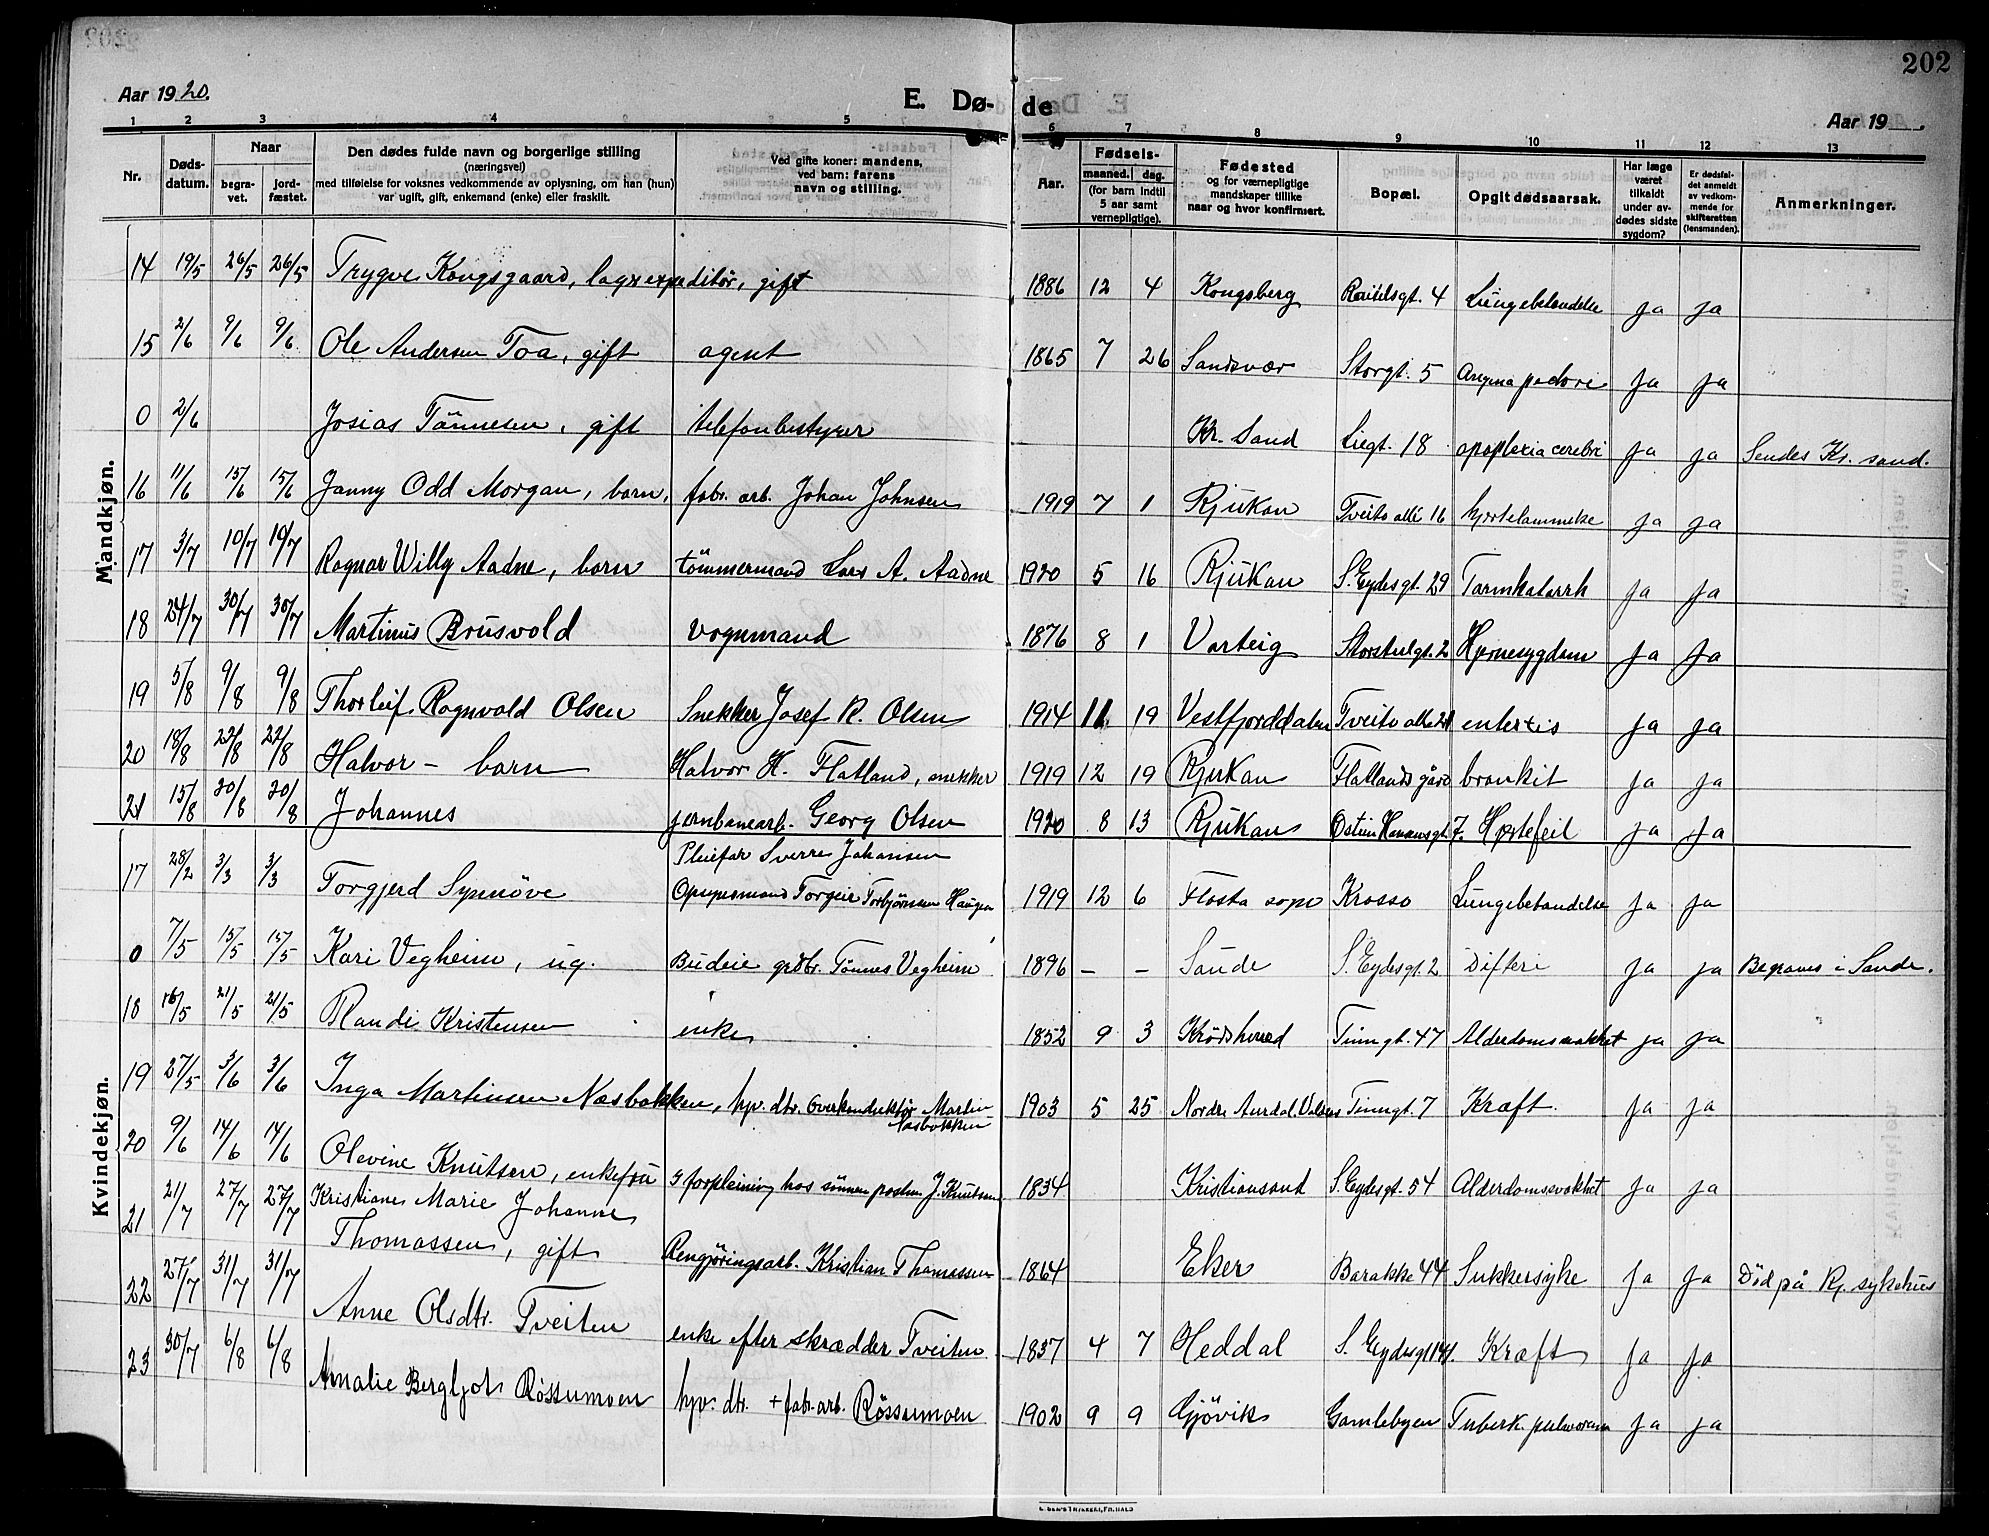 202
Aar 1920.
E. Dø-
de
Aar 19
1 2 3 4 5 6 7 8 9 10 11 12 13
Nr.
Døds-
datum.
Naar
begra-
vet.
jord-
fæstet.
Den dødes fulde navn og borgerlige stilling
(næringsvei)
med tilføielse for voksnes vedkommende av oplysning, om han (hun)
var ugift, gift, enkemand (enke) eller fraskilt.
Ved gifte koner: mandens,
ved barn: farens
navn og stilling.
Aar.
Fødsels-
maaned. dag.
(for barn indtil
5 aar samt
vernepligtige).
Fødested
og for værnepligtige
mandskaper tillike
naar og hvor konfirmert.
Bopæl.
Opgit dødsaarsak.
Har læge
været
tilkaldt
under av-
dødes sidste
sygdom?
Er dødsfal-
det anmeldt
av vedkom-
mende for
skifteretten
(lensmanden).
Anmerkninger.
Mandkjøn.
14 19/5 26/5 26/5 Trygve Kongsgaard, lagerexpeditør, gift 1886 12 4 Kongsberg 4 Lungebetendelse ja ja
15 2/6 9/6 9/6 Ole Andersen Toa, gift agent 1865 7 26 Sandsvær Storgt. 5 ja ja
0 2/6 Josias Tönnesen, gift telefonbestyrer Kr. Sand Liegt. 18 apoplexia cerebri ja ja Sendes Kr. sand.
16 11/6 15/6 15/6 Janny Odd Morgan, barn, fabr. arb. Johan Johnsen 1919 7 1 Rjukan Tveito allé 16 hjertelammelse ja ja
17 3/7 10/7 10/7 Ragnar Willy Aadne, barn tömmermand Lars A. Aadne 1920 5 16 Rjukan S. Eydesgt. 29 Tarmkatarrh ja ja
18 24/7 30/7 30/7 Martinus Brusvold vognmand 1876 8 1 Varteig Storstulgt. 2 Hjernesygdom ja ja
19 5/8 9/8 9/8 Thorleif Ragnvald Olsen Snekker Josef R. Olsen 1914 11 19 Vestfjorddalen Tveito alle 21 enteritis ja ja
20 18/8 22/8 22/8 Halvor - barn Halvor H. Flatland, snekker 1919 12 19 Rjukan Flatlands gård bronkit ja ja
21 15/8 20/8 20/8 Johannes jernbanearb. Georg Olsen 1920 8 13 Rjukan Östein Hansensgt. 7. Hjertefeil ja ja
Kvindekjøn.
Pleiefar Sverre Johansen
17 28/2 3/3 3/3 Torgjerd Synnöve Opsynsmand Torgeir Torbjørnsen Haugen 1919 12 6 Flosta sogn Krosso Lungebetændelse ja ja
0 7/5 15/5 15/5 Kari Vegheim, ug. Budeie grdbr. Tönnes Vegheim 1896 - - Saude S. Eydesgt. 2 Difteri ja ja Begraves i Saude.
18 16/5 21/5 21/5 Randi Kristensen enke 1852 9 3 Krödsherred Tinngt. 47 Alderdomssvakhet ja ja
19 27/5 3/6 3/6 Inga Martinsen Næsbakken, hjv. dtr. Overkonduktør Martin
Næsbakken 1903 5 25 Nordre Aurdal, Valdres Tinngt. 7 Kræft ja ja
20 9/6 14/6 14/6 Olevine Knutsen, enkefru I forpleining hos sönnen postm J. Knutsen 1834 Kristiansand S. Eydesgt. 54 Alderdomssvakhet ja ja
21 21/7 27/7 27/7 Kristiane Marie Johanne
Thomassen, gift Rengjöringsarb. Kristian Thomassen 1864 Eker Barakke 44 Sukkersyke ja ja Död på Rj. sykehus
22 27/7 31/7 31/7 Anne Olsdtr. Tveiten enke efter skrædder Tveiten 1837 4 7 Heddal S. Eydesgt. Kræft ja ja
23 30/7 6/8 6/8 Amalie Bergljot Røssumoen hjv. dtr. + fabr. arb. Røssumoen 1902 9 9 Gjövik Gamlebyen Tuberk. pulmonum ja ja